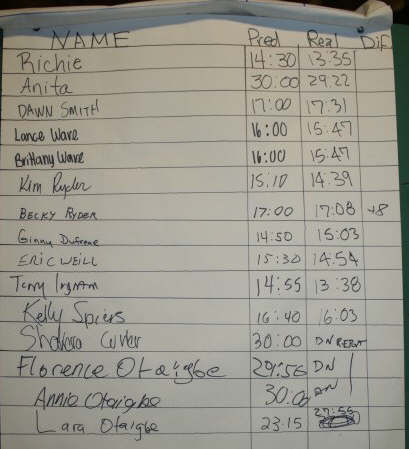 NAME Pred Real Dif
Richie 14:30 13:35
Anita 30:00 29:22
DAWN SMITH 17:00 17:31
Lance Ware 16:00 15:47
Brittany Ware 16:00 15:47
Kim Ryder 15:10 14:39
BECKY RYDER 17:00 17:08 +8
Ginny Dufrene 14:50 15:03
ERIC WEILL 15:30 14:54
Terry Ingram 14:55 13:38
Kelly Spiers 16:40 16:03
30:00 DN
Florence Otaigbe 29:56 DN
Annie Otaigbe 30:00 DN
Lara Otaigbe 23:15